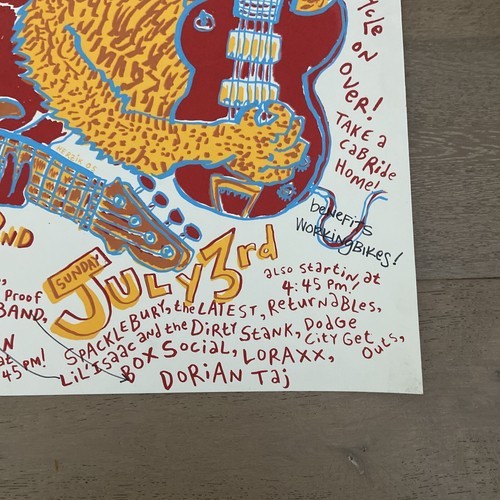 cycle on
over!
Take a
cabride
Home!
benefits
WORKINGBIKES!
SUNDAY
July 3rd
also startin at
4:45 pm!
Proof
BAND,
45 pm!
SPACKLEBURY, the LATEST, Returnables,
Lil' Isaac and the Dirty Stank, Dodge
City Get Outs,
BOX Social, LORAXX,
DORiAN Taj